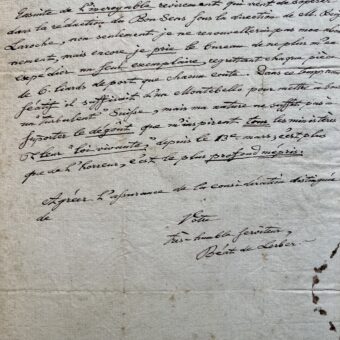 ensuite de l'incroyable revirement qui vient de s'opérer
dans la rédaction du Bon Sens sous la direction de
Laroche, non seulement, je ne renouvellerai pas mon abon-
nement, mais encore je prie le bureau de ne plus m'en
expédier un seul exemplaire, regrettant chaque pièce
de 6. liards de port que chacun coute. Dans ce temps
il suffisoit d'un Montebello pour mettre
un "turbulent" Suisse, mais ma nature ne suffit, pas à
supporter le dégout que m'inspirent tous les ministères
& leur depuis le 13e mars; c'est plus
que de l'horreur, c'est le plus profond mépris.
Agréez l'assurance de la considération distinguée
de
Votre
très-humble serviteur,
Béat de Lerber